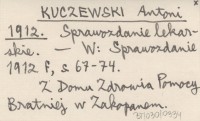 KUCZEWSKI Antoni
1912. Sprawozdanie lekar-
skie. — W: Sprawozdanie
1912 r, s 67-74.
Z Domu Zdrowia Pomocy
Bratniej w Zakopanem.